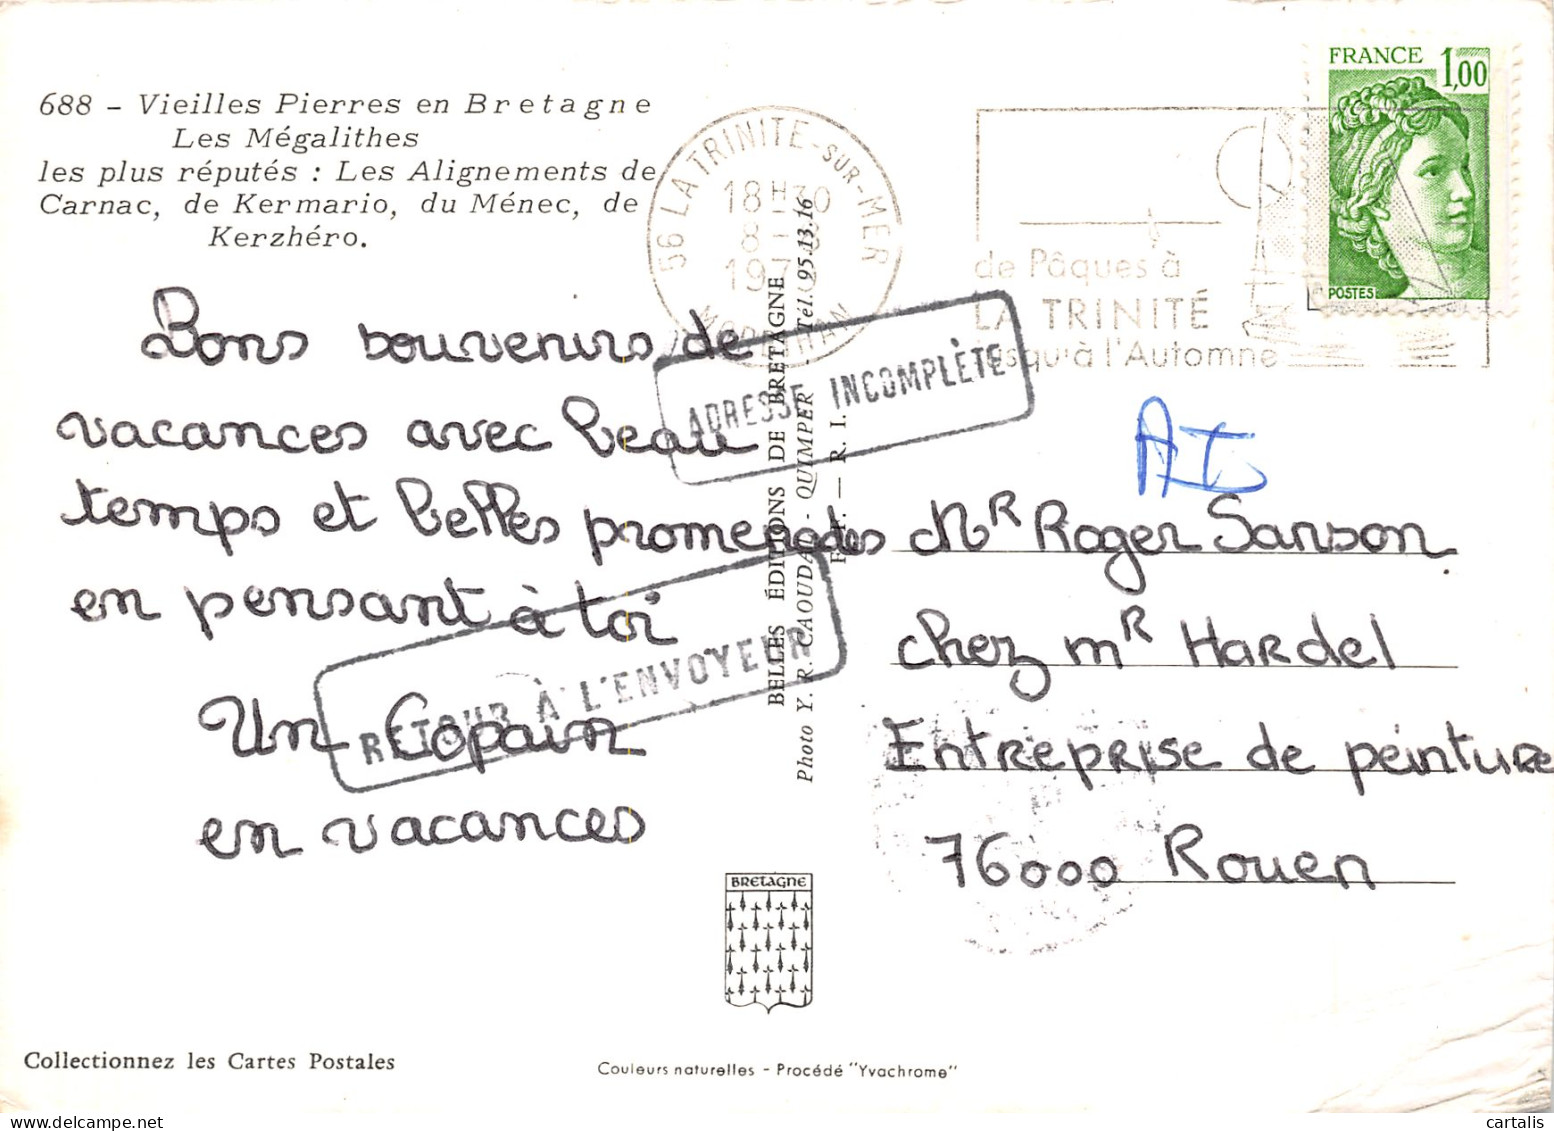 688 - Vieilles Pierres en Bretagne
Les Mégalithes
les plus réputés : Les Alignements de
Carnac, de Kermario, du Ménec, de
Kerzhéro.
Bons souvenirs de
vacances avec beau
temps et belles promenades
en pensant à toi
Un Copain
en vacances
ADRESSE INCOMPLÈTE
RETOUR À L'ENVOYEUR
56 LA TRINITE-SUR-MER
18H30
8 -
197
MORBIHAN
de Pâques à
LA TRINITÉ
jusqu'à l'Automne
FRANCE 1,00
POSTES
BELLES ÉDITIONS DE BRETAGNE
Photo Y. R. CAOUDAL - QUIMPER - Tél. 95.13.16
— R. I.
AI
Mr Roger Sanson
chez mr Hardel
Entreprise de peinture
76000 Rouen
BRETAGNE
Collectionnez les Cartes Postales
Couleurs naturelles - Procédé "Yvachrome"
cartalis